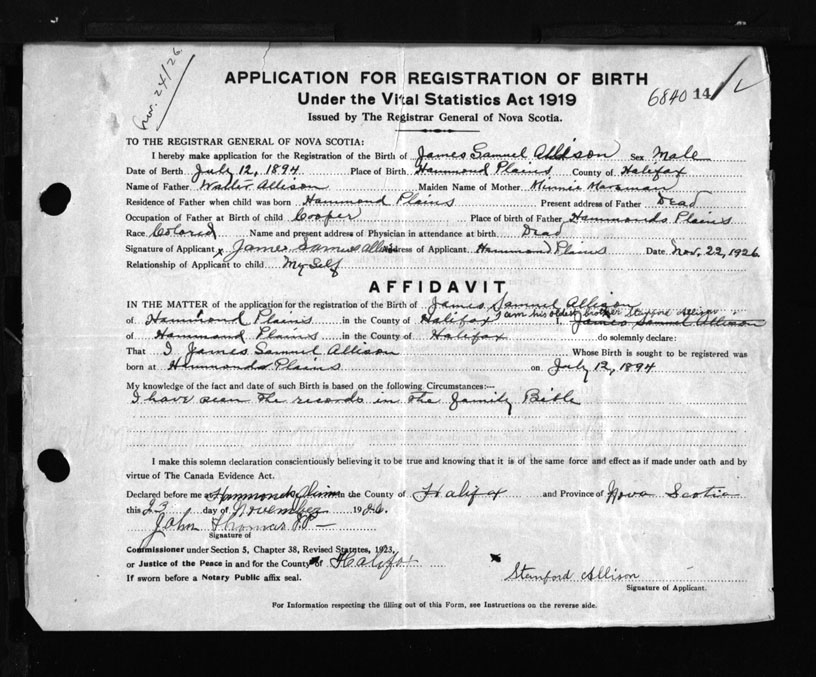 Nov. 24/26
APPLICATION FOR REGISTRATION OF BIRTH
Under the Vital Statistics Act 1919
6840 14
Issued by The Registrar General of Nova Scotia.
TO THE REGISTRAR GENERAL OF NOVA SCOTIA:
I hereby make application for the Registration of the Birth of James Samuel Allison Sex Male
Date of Berth July 12, 1894 Place of Birth Hammond Plains County of Halifax
Name of Father Walter Allison Maiden Name of Mother Minnie
Residence of Father when child was born Hammond Plains Present address of Father Dead
Occupation of Father at Birth of child Cooper Place of birth of Father Hammonds Plains
Race Colored Name and present address of Physician in attendance at birth Dead
Signature of Applicant x James Samuel Allison Address of Applicant Hammond Plains Date Nov. 22, 1926.
Relationship of Applicant to child My Self
AFFIDAVIT
IN THE MATTER of the application for the registration of the Birth of James Samuel Allison
I am his oldest brother Allison
of Hammond Plains in the County of Halifax I, James Samuel Allison
of Hammond Plains in the County of Halifax do solemnly declare:
That I James Samuel Allison Whose Birth is sought to be registered was
born at Hammonds Plains on July 12, 1894
My knowledge of the fact and date of such Birth is based on the following Circumstances:—
I have seen the records in the family Bible
I make this solemn declaration conscientiously believing it to be true and knowing that it is of the same force and effect as if made under oath and by
virtue of The Canada Evidence Act.
Declared before me at Hammonds Plains in the County of Halifax and Province of Nova Scotia
this 23 day of November 1926.
John Thomas J.P.
Signature of
Commissioner under Section 5, Chapter 38, Revised Statutes, 1923,
or Justice of the Peace in and for the County of Halifax
If sworn before a Notary Public affix seal.
Stanford Allison
Signature of Applicant.
For Information respecting the filling out of this Form, see Instructions on the reverse side.